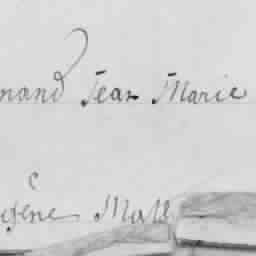 nand Jean Marie
gène Mall